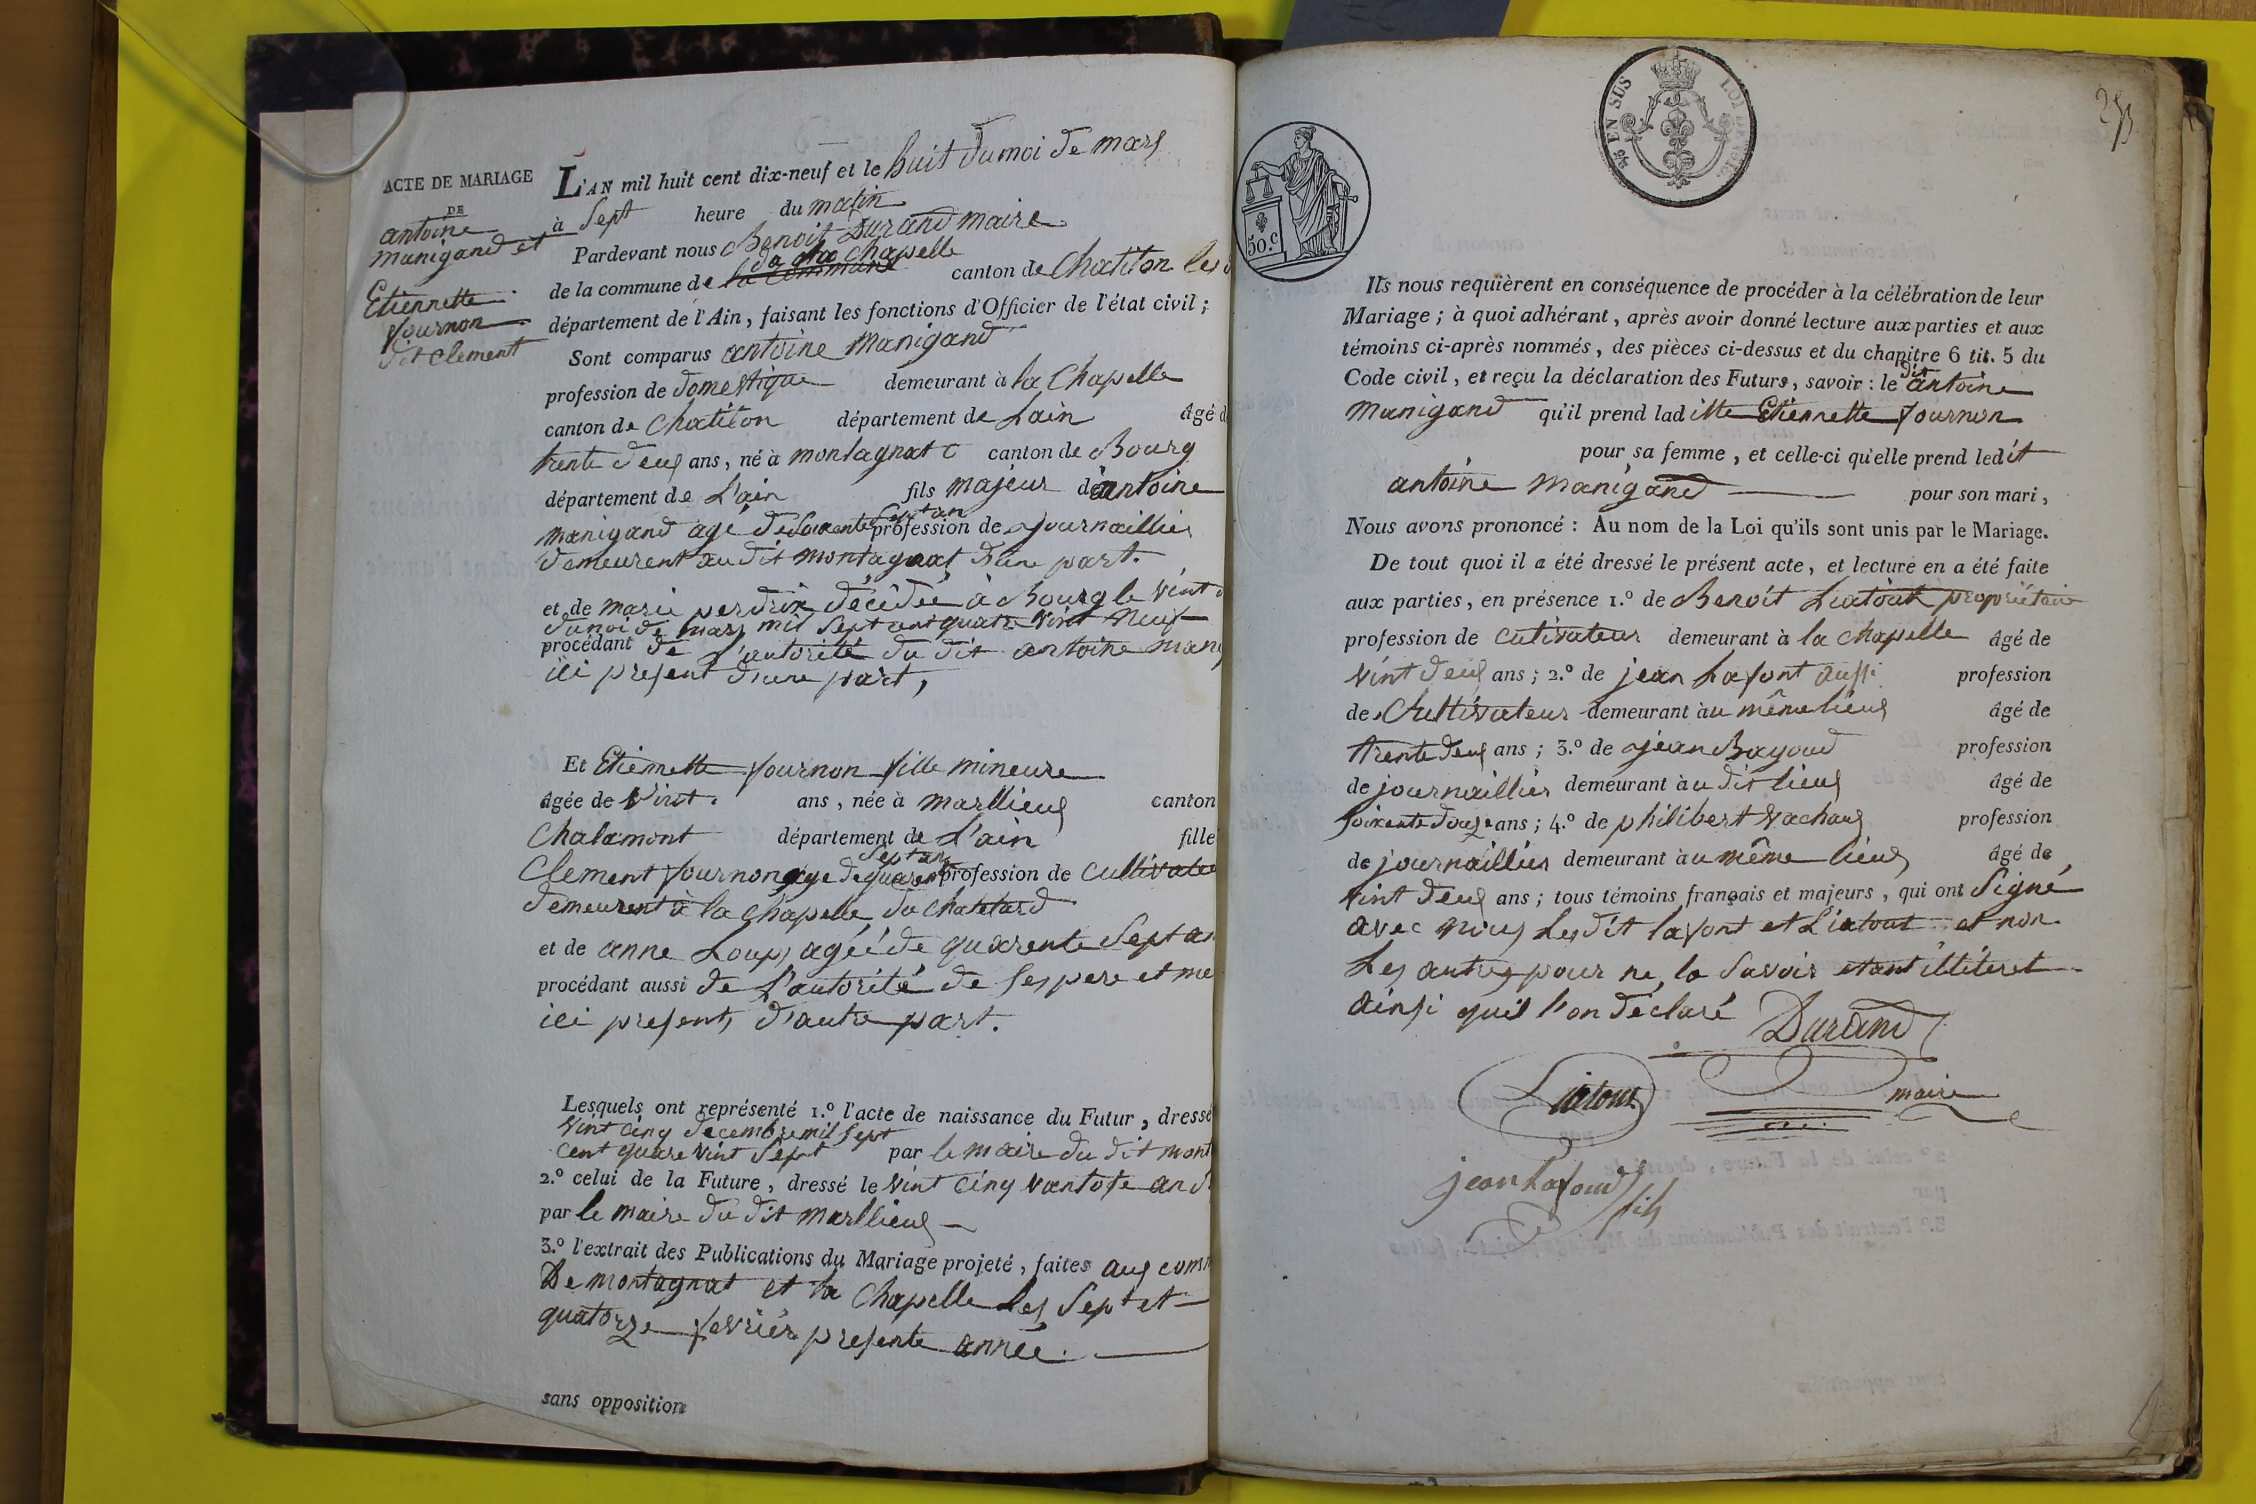 ACTE DE MARIAGE
DE
antoine
manigand et
Etiennette
fournon
dit clement
L'AN mil huit cent dix-neuf et le huit du moi de mars
à Sept heure du matin
Pardevant nous Benoit Durand maire
de la chapelle
de la commune de la commune canton de Chatilon les
département de l'Ain, faisant les fonctions d'Officier de l'état civil ;
Sont comparus antoine manigand
profession de domestique demeurant à la Chapelle
canton de Chatilon département de Lain âgé d
trente deux ans, né à montagnat canton de Bourg
département de L'ain fils majeur de antoine
manigand agé de Soixente Sept an profession de journaillier
demeurent au dit montagnat d'une part.
et de marie perdrix décédée à Bourg le vint
du moi de mars mil Sept cent quatre vint neuf
procédant de l'autorité du dit antoine mani
ici present d'une part,
Et Etiennette fournon fille mineure
âgée de vint ans, née à marllieux canton
Chalamont département de L'ain fille
Clement fournon age de quarente Sept an profession de cultivateu
demeurent à la chapelle du chatelard
et de anne Loup agéé de quarente Sept an
procédant aussi de l'autorité de Ses pere et me
ici present, d'autre part.
Lesquels ont représenté 1.º l'acte de naissance du Futur, dressé
vint cinq decembre mil Sept
cent quatre vint Sept par le maire du dit mont
2.º celui de la Future, dressé le vint cinq vantose an
par le maire du dit marllieux
3.º l'extrait des Publications du Mariage projeté, faites aux comm
De montagnat et la Chapelle les Sept et
quatorze fevrier presente année.
sans opposition
48 EN SUS
LOI DE
50.c
253
Ils nous requièrent en conséquence de procéder à la célébration de leur
Mariage ; à quoi adhérant, après avoir donné lecture aux parties et aux
témoins ci-après nommés, des pièces ci-dessus et du chapitre 6 tit. 5 du
Code civil, et reçu la déclaration des Futurs, savoir : le dit antoine
manigand qu'il prend laditte Etiennette fournon
pour sa femme, et celle-ci qu'elle prend ledit
antoine manigand pour son mari,
Nous avons prononcé : Au nom de la Loi qu'ils sont unis par le Mariage.
De tout quoi il a été dressé le présent acte, et lecture en a été faite
aux parties, en présence 1.º de Benoit Liatout propriétaire
profession de cutivateur demeurant à la chapelle âgé de
vint deux ans ; 2.º de jean Lafont aussi profession
de Cultivateur demeurant à u même lieux âgé de
trente deux ans ; 3.º de jean Bayoud profession
de journaillier demeurant à u dit lieux âgé de
Soixente douze ans ; 4.º de philibert vachoux profession
de journaillier demeurant à u même lieux âgé de
vint deux ans ; tous témoins français et majeurs, qui ont Signé
avec nous Les dit lafont et Liatout et non
Les autres pour ne la Savoir etant illiteret
ainsi quil l'on déclaré
Durand
maire
Liatout
jean Lafond fils